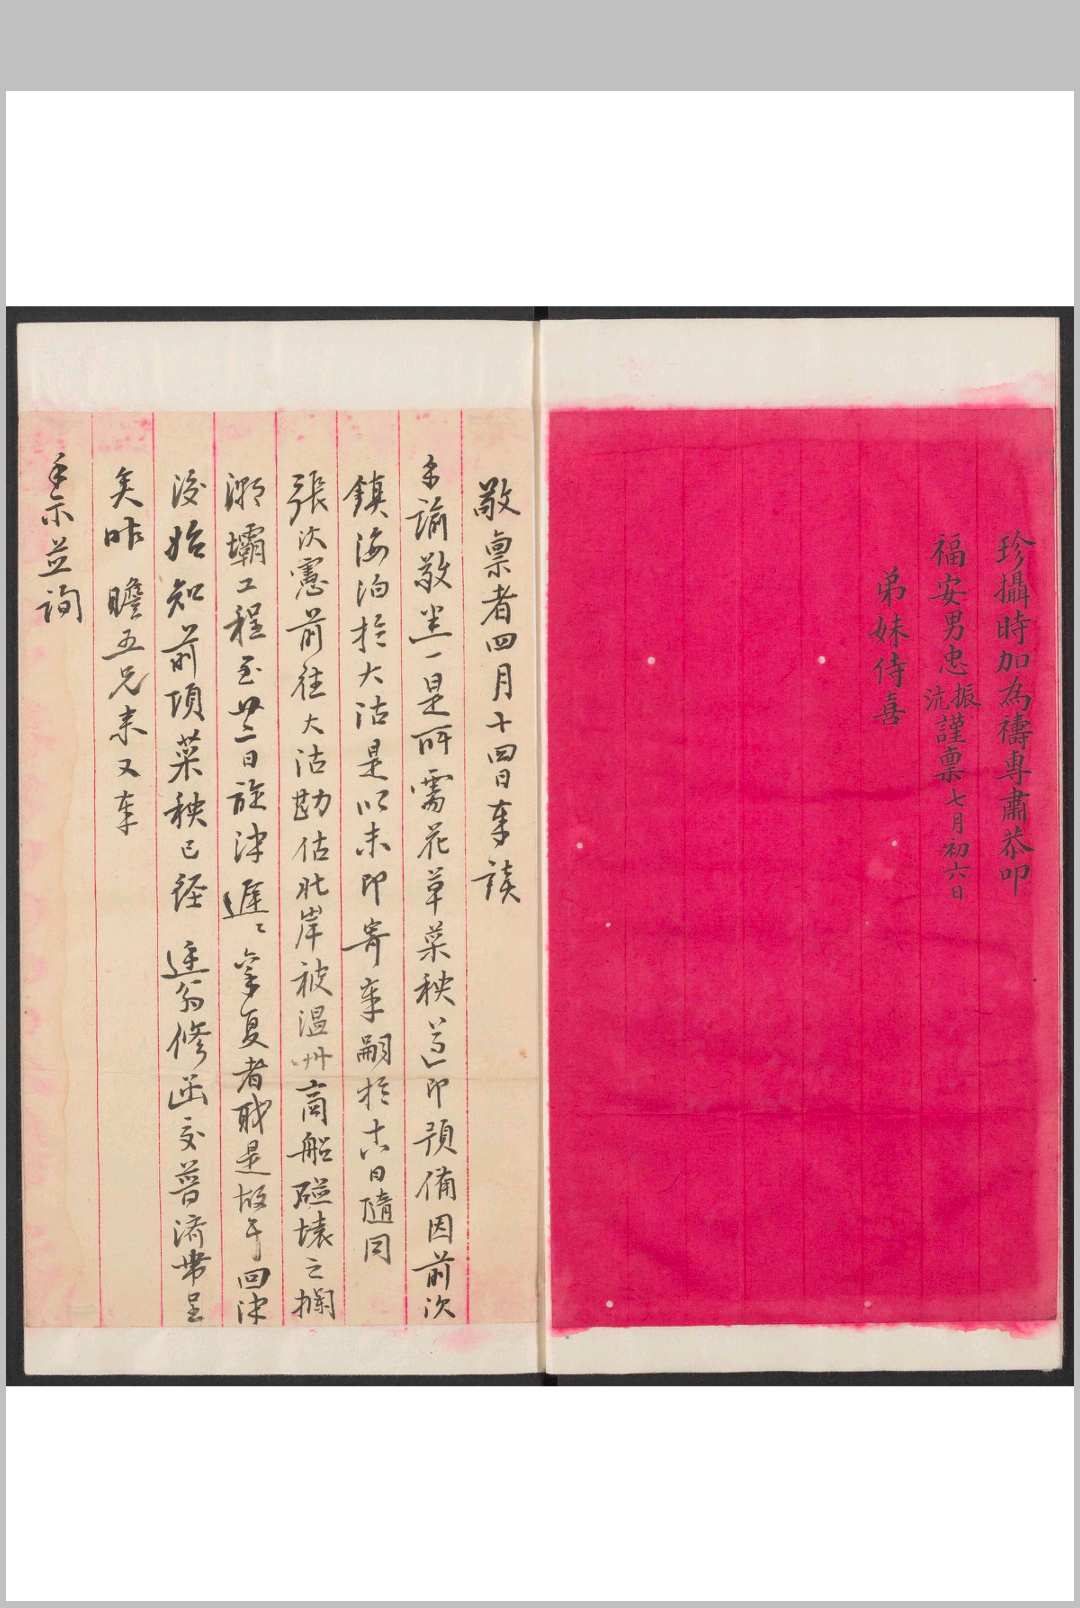 珍攝時加為禱專肅恭叩
福安男忠振沆謹稟七月初六日
弟妹侍喜
敬稟者四月十四日奉讀
手諭敬悉一是所需花草菜秧并即預備因前次
鎮海泊於大沽是以未即寄奉嗣於十六日隨同
張次憲前往大沽勘估北岸被温州商船碰壞之攔
潮壩工程至廿三日旋津遲遲稟覆者職是故耳回津
後始知前項菜秧已經蓮翁修函交普濟帶呈
矣昨瞻五兄來又奉
手示並詢